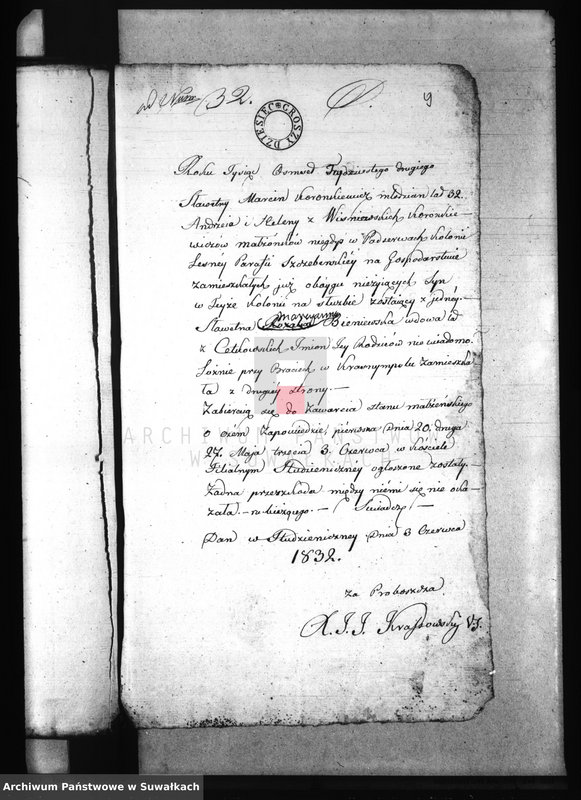 ad Num 32.
9
DZIESIĘC GROSZY
Roku Tysiąc Osmset Trzydziestego drugiego
Sławetny Marcin Koronkiewicz młodzian lat 32.
Andrzeia i Heleny z Wiśniewskich Koronkie-
wiczów małżonków niegdy w Podserwach Kolonii
Leśney Parafii Szczebrskiéy na Gospodarstwie
zamieszkałych już oboygu nieżyiących Syn
w Teyże Kolonii na służbie zostaiący z jedney.
maryanna
Sławetna Rozalia Bieniewska wdowa lat
z Imion Jey Rodziców nie wiadomo
przy Braciech w Krasnympolu Zamieszka
ła z drugiéy strony.—
Zabieraią się do Zawarcia stanu małżeńskiego
o czém Zapowiedzie, pierwsza Dnia 20. druga
27. Maja trzecia 3. Czerwca w Kościele
Filialnym Studzieniczney ogłoszone zostały.
Żadna przeszkoda między niémi się nie oka
zała. —
Dan w Studzieniczney Dnia 3 Czerwca
1832.
Za Proboszcza.
X. J. J. Krajkowski
ARCHIWUM PAŃSTWOWE
W SUWAŁKACH
Archiwum Państwowe w Suwałkach